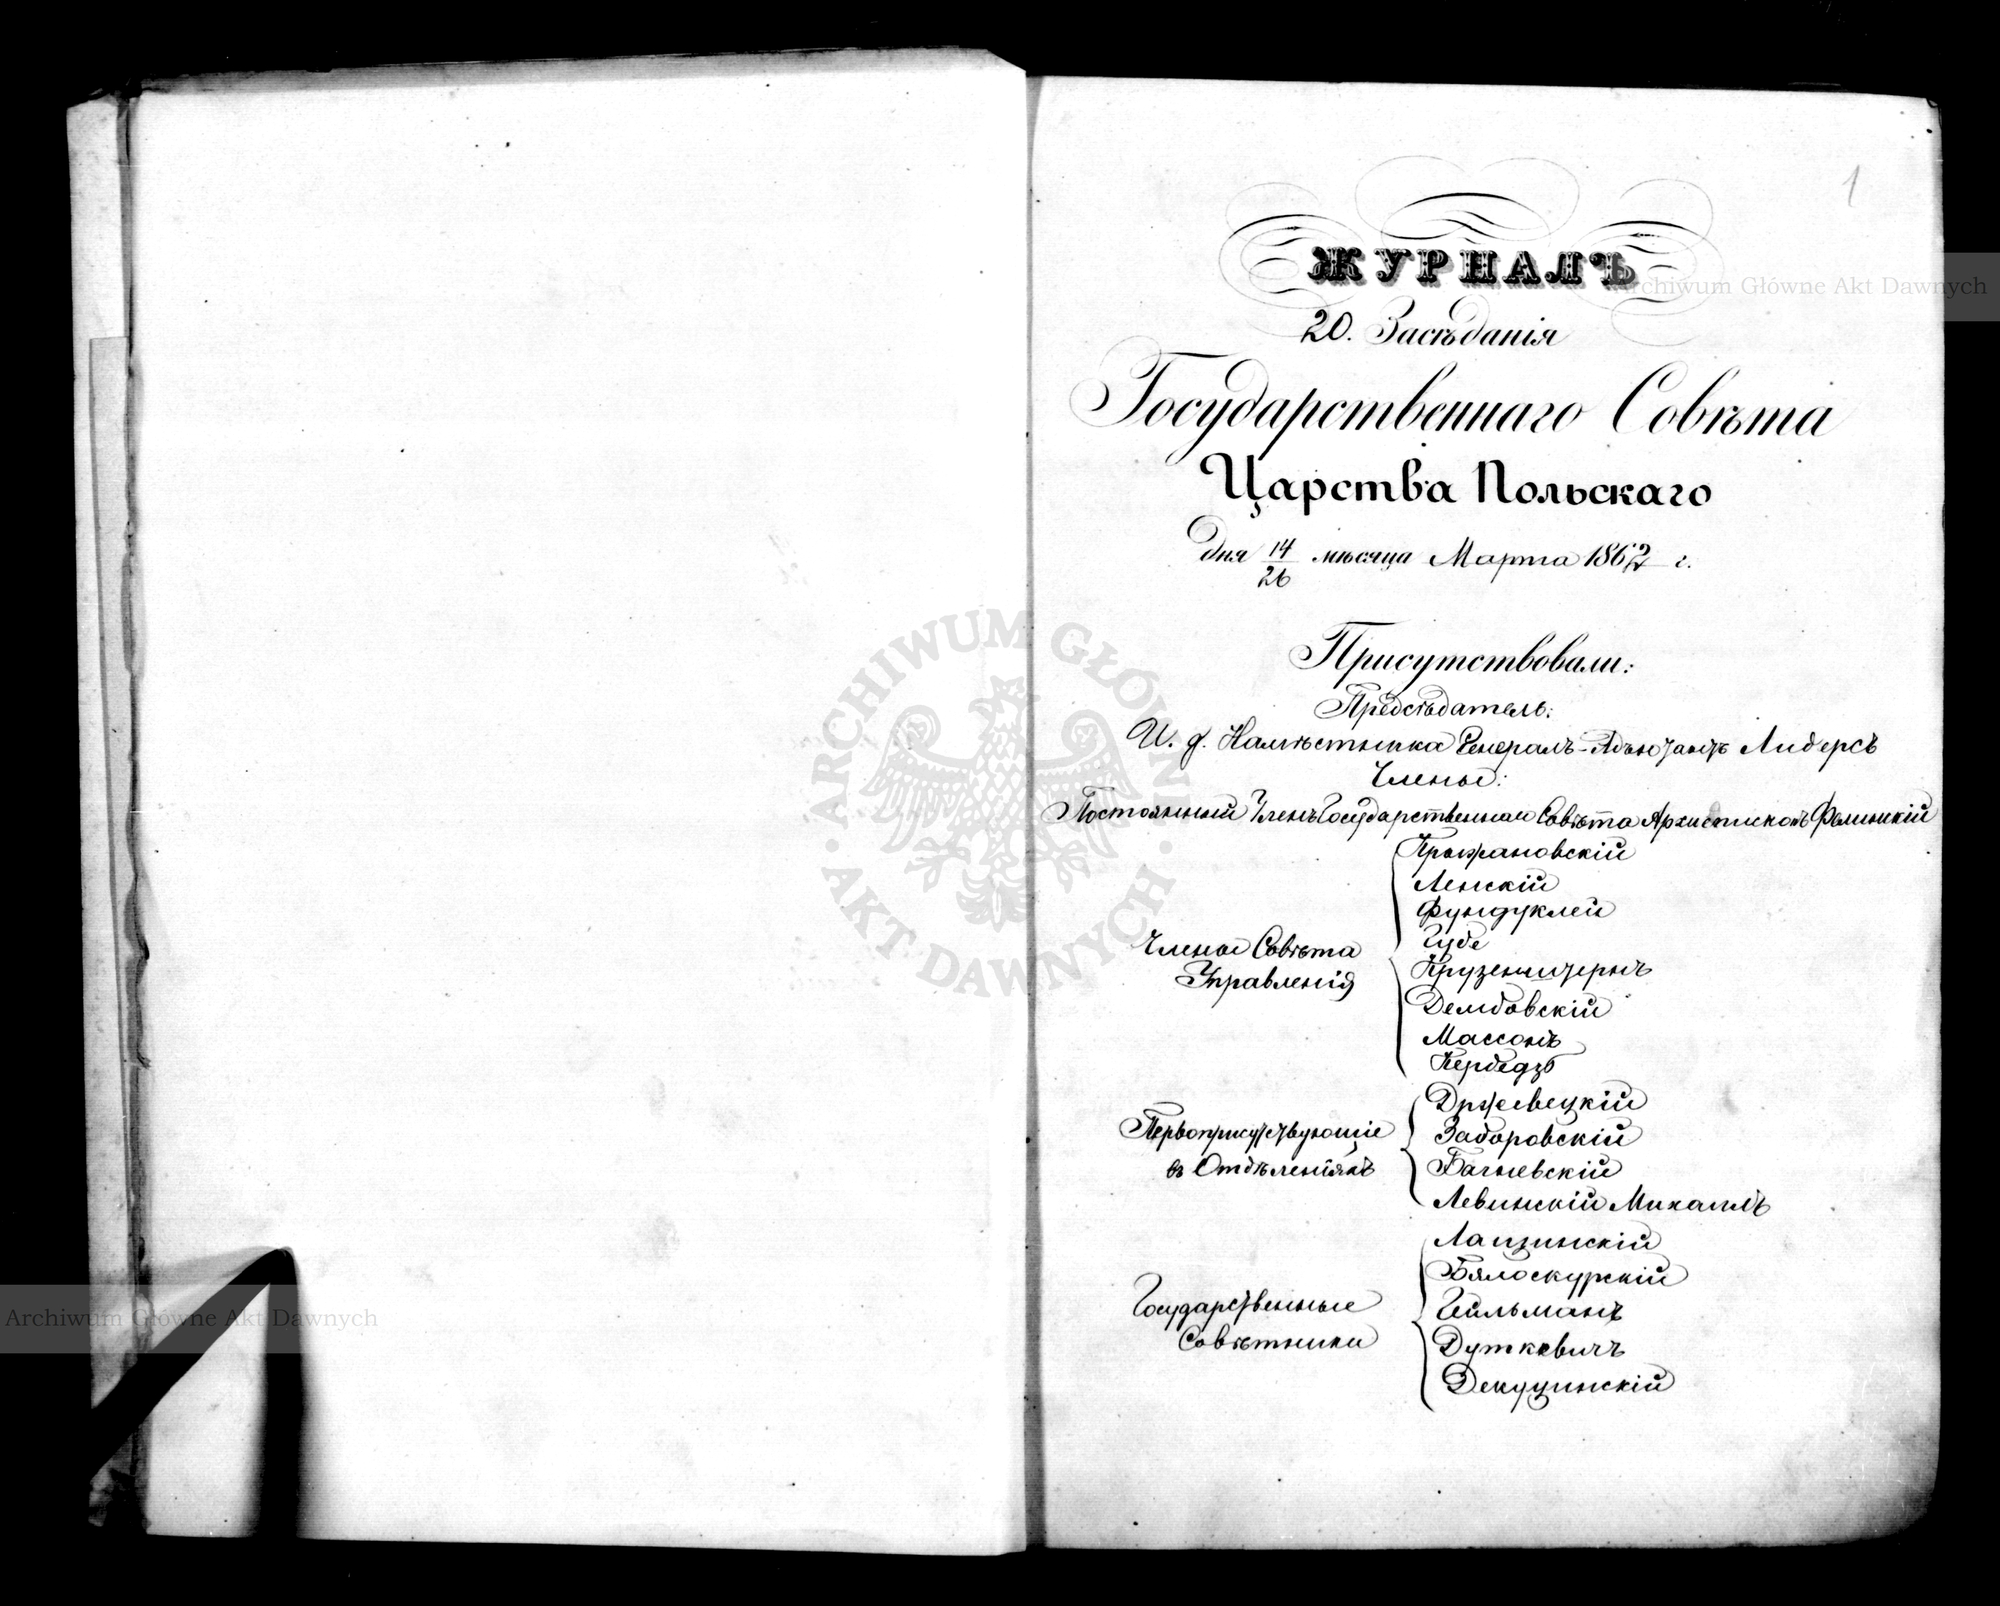 1
ЖУРНАЛЪ
20. Засѣданія
Государственнаго Совѣта
Царства Польскаго
дня 14/26 мѣсяца Марта 1862 г.
Присутствовали:
Предсѣдатель:
И. д. Намѣстника Генералъ-Адъютантъ Лидерсъ
Члены:
Постоянный Членъ Государственнаго Совѣта Архіепископъ Фелинскій
Члены Совѣта
Управленія
Крыжановскій
Ленскій
Фундуклей
Губе
Крузенштернъ
Дембовскій
Массонъ
Кербедзъ
Первоприсутствующіе
въ Отдѣленіяхъ
Држевецкій
Заборовскій
Багневскій
Левинскій Михаилъ
Государственные
Совѣтники
Лащинскій
Бялоскурскій
Гейльманъ
Дуткевичъ
Декуцинскій
ARCHIWUM GŁÓWNE
AKT DAWNYCH
Archiwum Główne Akt Dawnych
Archiwum Główne Akt Dawnych